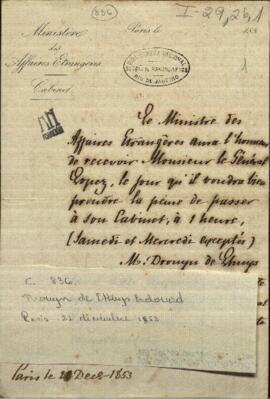 836
I-29,26,1
Ministère
des
Affaires Etrangères
Cabinet
Paris le
185
BIBLIOTHECA NACIONAL
RIO DE JANEIRO
1
Le Ministre des
Affaires Etrangères aura l'honneur
de recevoir Monsieur le Général
Lopez, le jour qu'il voudra bien
prendre la peine de passer
à son Cabinet, à 1 heure,
(Samedi et Mercredi exceptés)
M. Drouyn de Lhuys
C. 836
Drouyn de Lhuys Edouard
Paris 22 dicembre 1853
Paris le 2 Decb 1853